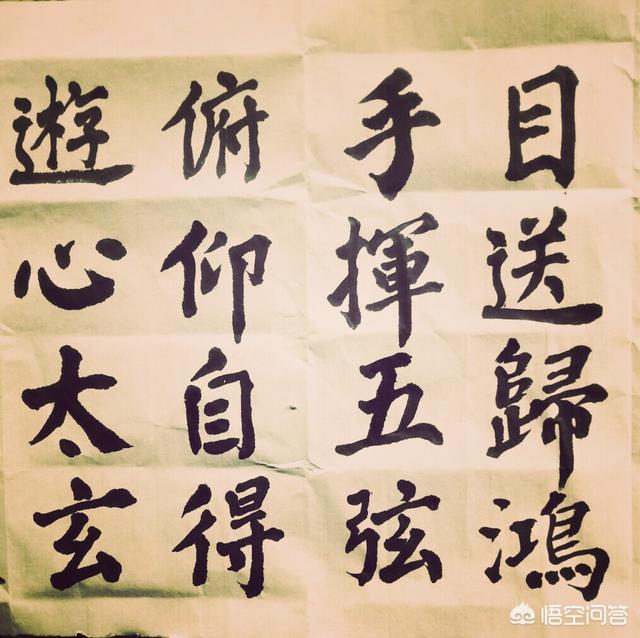 目送歸鴻
手揮五弦
俯仰自得
遊心太玄
悟空问答